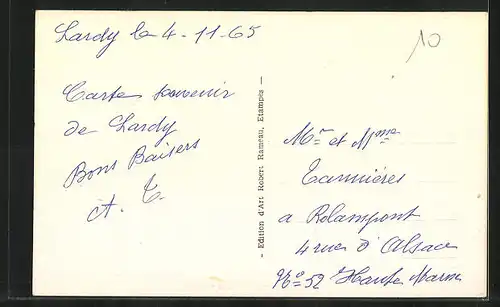 Lardy le 4-11-65
10
Carte souvenir
de Lardy
Bons Baisers
A. T.
- Edition d'Art Robert Rameau, Etampes -
Mr et Mme
Tannières
a Rolampont
4 rue d'Alsace
No=52 Haute Marne